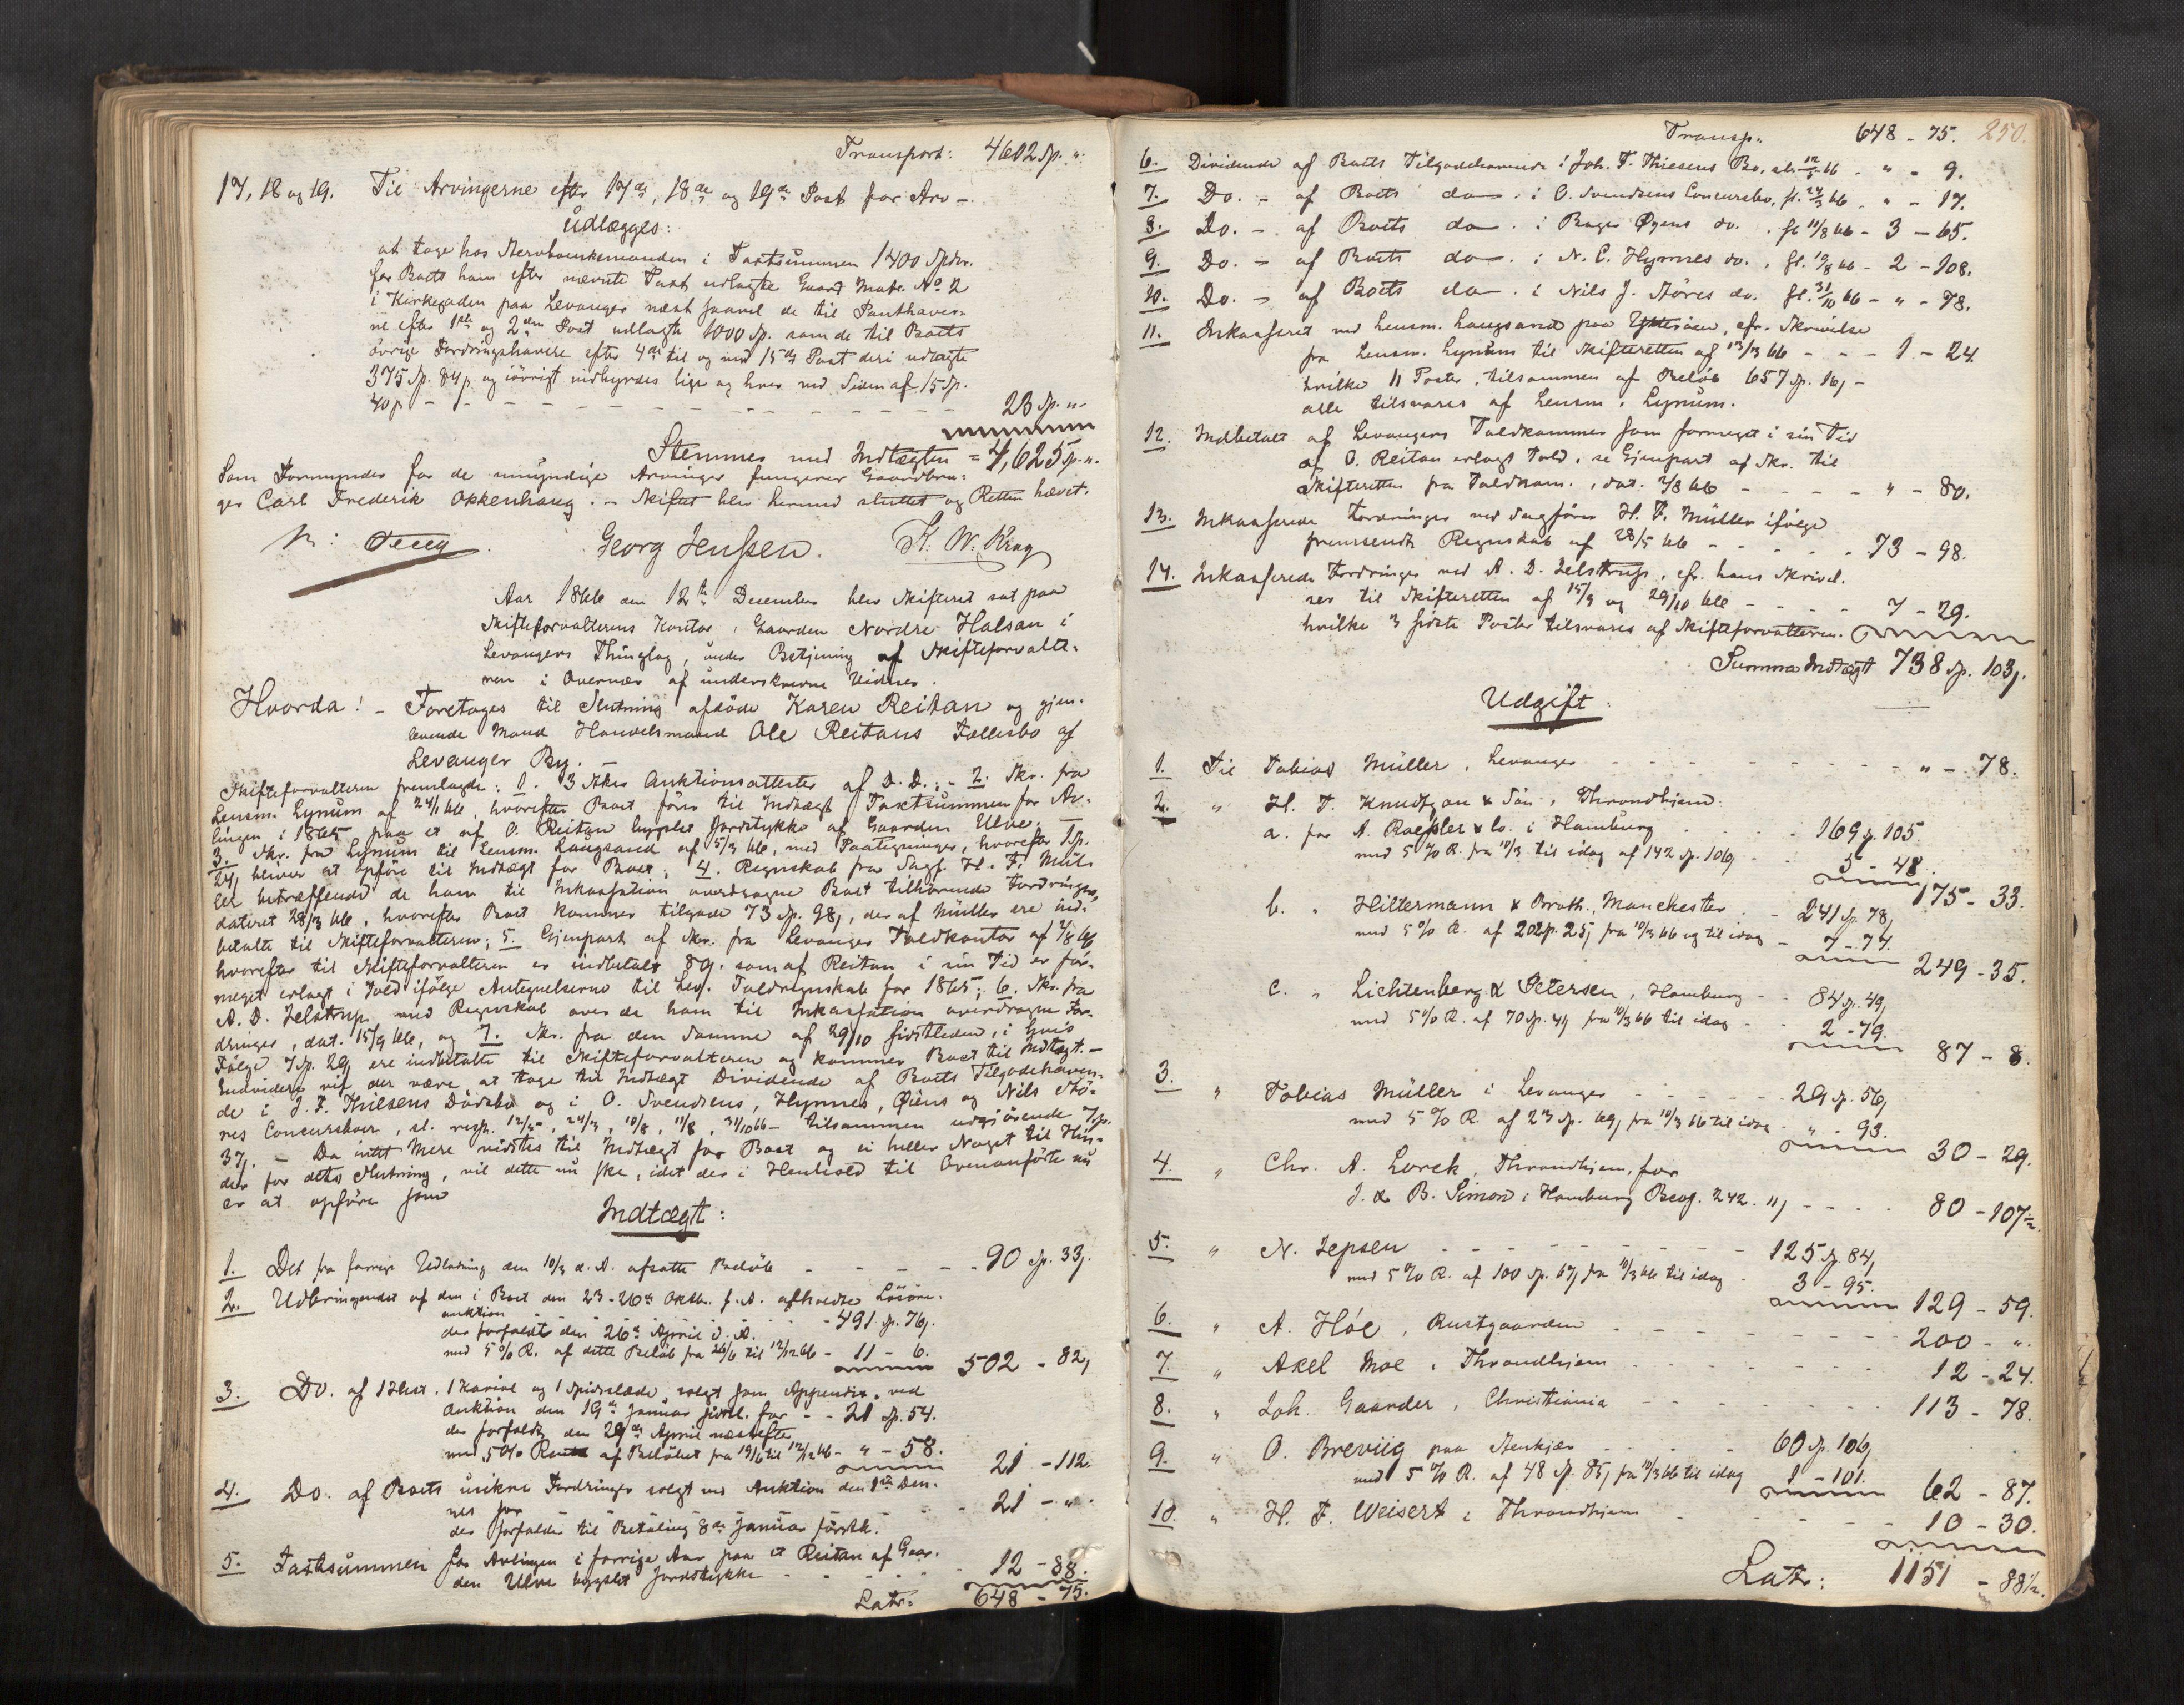 Transport: 4602 Sp. "
17, 18 og 19. Til Arvingerne efter 17de, 18de og 19de Post for Arv -
udlægges:
at tage hos Stervboenkemanden i Taxtsummen 1400 Spdlr.
for Boets ham efter nævnte Taxt udlagte Gaard Matr. No 2
i Kirkegaden paa Levanger næst saavel de til Panthaver-
ne efter 1ste og 2den Post udlagte 1000 Sp. som de til Boets
övrige Fordringshavere efter 4de til og med 15de Post deri udlagte
375 Sp. 84 p. og iövrigt indbyrdes lige og hver ved Siden af 15 Sp.
40 p - - - - 23 Sp. "
Stemmer med Indtægten = 4,625 Sp. ".
Som Formynder for de umyndige Arvinger fungerer Gaardbru-
ger Carl Frederik Okkenhaug. - Skiftet blev hermed sluttet og Retten hævet.
Georg Jenssen. K. W. Krag
Aar 1866 den 12te December blev Skifteret sat paa
Skifteforvalterens Kontor, Gaarden Nordre Halsan i
Levangers Thinglag, under Betjening af Skifteforvalte-
ren i Overvær af underskrevne Vidner.
Hvorda! - Foretoges til Slutning afdöde Karen Reitan og gjen-
levende Mand Handelsmand Ole Reitans Fællesbo af
Levanger By. -
Skifteforvalteren fremlagde: 1. 3 Stkr Auktionsattester af D. D.; - 2. Skr. fra
Lensm. Lynum af 24/1 66, hvorefter Boet föres til Indtægt Taxtsummen for Av-
lingen i 1865 paa et af O. Reitan bygslet Jordstykke af Gaarden Ulve. -
3. Skr. fra Lynum til Lensm. Langsand af 5/3 66, med Paategninger, hvorefter 1 Sp.
24 bliver at opföre til Indtægt for Boet; 4. Regnskab fra Sagf. H. F. Mül-
ler betræffende de ham til Inkassation overdragne Boet tilhörende Fordringer,
dateret 28/5 66, hvorefter Boet kommer tilgode 73 Sp. 98, der af Müller ere ind-
betalte til Skifteforvalteren; 5. Gjenpart af Skr. fra Levanger Toldkontor af 2/8 66
hvorefter til Skifteforvalteren er indbetalt 80. som af Reitan i sin Tid er for-
meget erlagt i Told ifölge Antegnelserne til Lev. Toldregnskab for 1865; 6. Skr. fra
A. D. Jelstrup med Regnskab over de ham til Inkassation overdragne For-
dringer, dat. 15/9 66, og 7. Skr. fra den Samme af 29/10 sidstleden, i hvis
Fölge 7 Sp. 29 ere indbetalte til Skifteforvalteren og kommer Boet til Indtægt. -
Endvidere vil der være at tage til Indtægt Dividende af Boets Tilgodehaven-
de i J. F. Thiesens Dödsbo og i O. Svendsens, Hymnes, Öiens og Nils Stö-
res Concursboer, sl. resp. 12/5, 24/3, 10/8, 11/8, 31/10 66 - tilsammen udgjörende 7 Sp.
37. - Da intet Mere vidstes til Indtægt for Boet og ei heller Noget til Hin-
der for dets Slutning, vil dette nu ske, idet der i Henhold til Ovenanförte nu
er at opföre som
Indtægt:
1. Det fra forrige Udlodning den 10/3 d. A. afsatte Belöb - - - 90 Sp. 33.
2. Udbringendet af den i Boet den 23-26de Oktbr. f. A. afholdte Lösöre-
auktion - 491 Sp. 76.
der forfaldt den 26de April d. A.
med 5 % R. af dette Belöb fra 26/6 til 12/12 66 - 11 - 6. 502 - 82,
3. Do. af 1 Hest. 1 Kariol og 1 Spidsslæde solgt som Appendix ved
Auktion den 19de Januar sidstl. for - - 21 Sp. 54.
der forfaldt den 29de April næstefter
med 5 % Rente af Belöbet fra 19/6 til 12/12 66 - " - 58. 21 - 112.
4. Do. af Boets usikre Fordringer solgt ved Auktion den 1ste Den-
nes for - 21 - ".
der forfalder til Betaling 8de Januar förstk.
5. Taxtsummen for Avlingen i forrige Aar paa et Reitan af Gaar-
den Ulve bygslet Jordstykke - - 12 - 88.
Latr: 648 - 75.
Transp. 648 - 75. 250.
6. Dividende af Boets Tilgodehavende i Joh. F. Thiesens Bo, sl. 12/5 66 - " - 9.
7. Do. - af Boets do. i O. Svendsens Concursbo, sl. 24/3 66 - " - 17.
8. Do. - af Boets do. i Bager Øyens do. sl 11/8 66 - 3 - 65.
9. Do. - af Boets do. i N. C. Hymnes do. sl. 10/8 66 - 2 - 108.
10. Do. - af Boets do. i Nils J. Störes do. sl. 31/10 66 - " - 78.
11. Inkasseret ved Lensm. Langsand paa Ytteröen, cfr. Skrivelse
fra Lensm. Lynum til Skifteretten af 13/3 66 - - - 1 - 24.
hvilke 11 Poster, tilsammen af Belöb 657 Sp. 16, -
alle tilsvares af Lensm. Lynum.
12. Indbetalt af Levangers Toldkammer som formeget i sin Tid
af O. Reitan erlagt Told, se Gjenpart af Skr. til
Skifteretten fra Toldkam., dat. 2/8 66 - - - " - 80.
13. Inkasserede Fordringer ved Sagförer H. F. Müller ifölge
fremsendt Regnskab af 28/5 66 - - - 73 - 98.
14. Inkasserede Fordringer ved A. D. Jelstrup, cfr. hans Skrivel-
ser til Skifteretten af 15/9 og 29/10 66 - - - 7 - 29.
hvilke 3 sidste Poster tilsvares af Skifteforvalteren.
Summa Indtægt 738 Sp. 103.
Udgift:
1. Til Tobias Müller, Levanger - - - " - 78.
2. " H. F. Knudtzon & Sön, Throndhjem.
a. for A. Roessler & Co. i Hamburg - - 169 Sp. 105.
med 5 % R. fra 10/3 til idag af 142 Sp. 106 - 5 - 48.
175 - 33.
b. " Hiltermann & Broth., Manchester - 241 Sp. 78,
med 5 % R. af 202 Sp. 25, fra 10/3 66 og til idag - 7 - 77.
249 - 35.
c. " Lichtenberg & Petersen, Hamburg - - 84 Sp. 49,
med 5 % R. af 70 Sp. 49 fra 10/3 66 til idag - - 2 - 79.
87 - 8.
3. " Tobias Müller i Levanger - - - 29 Sp. 56,
med 5 % R. af 23 Sp. 69, fra 10/3 66 til idag - " - 93.
30 - 29.
4. " Chr. A. Lorck, Throndhjem, for
J. & B. Simon i Hamburg Bcog. 242. 11, - - - 80 - 107½.
5. " N. Jepsen - - - 125 Sp. 84,
med 5 % R. af 100 Sp. 67, fra 10/3 66 til idag - 3 - 95.
129 - 59.
6. " A. Höe, Rustgaarden - - - 200 - ".
7. " Axel Moe i Throndhjem - - - 12 - 24.
8. " Joh. Gaarder, Christiania - - - 113 - 78.
9. " O. Breviig paa Stenkjær - - - 60 Sp. 106,
med 5 % R. af 48 Sp. 85, fra 10/3 66 til idag 1 - 101.
62 - 87.
10. " H. F. Weisert i Throndhjem - - - 10 - 30.
Latr: 1151 - 88½.